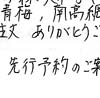 青梅,南高梅
注文 ありがとうご
先行予約のご案